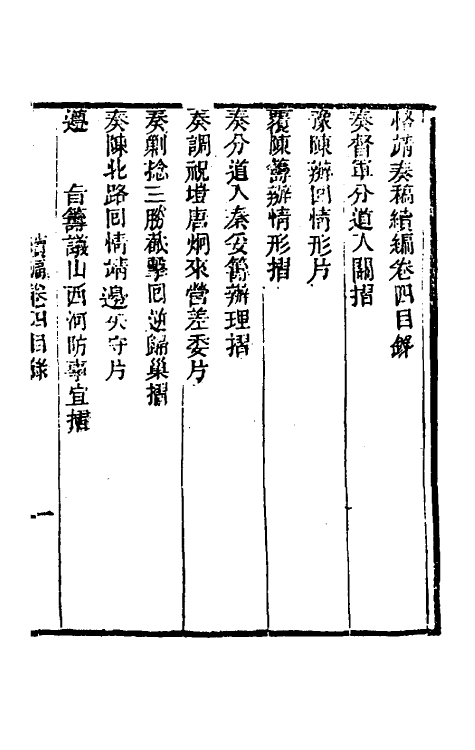 恪靖奏稿續編卷四目錄
奏督軍分道入關摺
豫陳辦回情形片
覆陳籌辦情形摺
奏分道入秦妥籌辦理摺
奏調祝塏唐炯來營差委片
奏剿捻三勝截擊回逆歸巢摺
奏陳北路回情靖邊失守片
遵 旨籌議山西河防事宜摺
續編卷四目錄
一